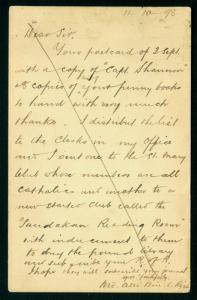 11. 10 - 95
Dear Sir,
Your postcard of 2 Sept.
with a copy of "Capt. Shannon"
& copies of your penny books
to hand with very much
thanks. I distribute the list
to the Clerks in my Office
and I sent one to the St. Mary
Club whose members are all
Catholics and another to a
new started Club called the
"Sandakan Reading Room"
with inducement to them
to buy the pound library
and subscribe your R of R.
I hope they will subscribe your journal